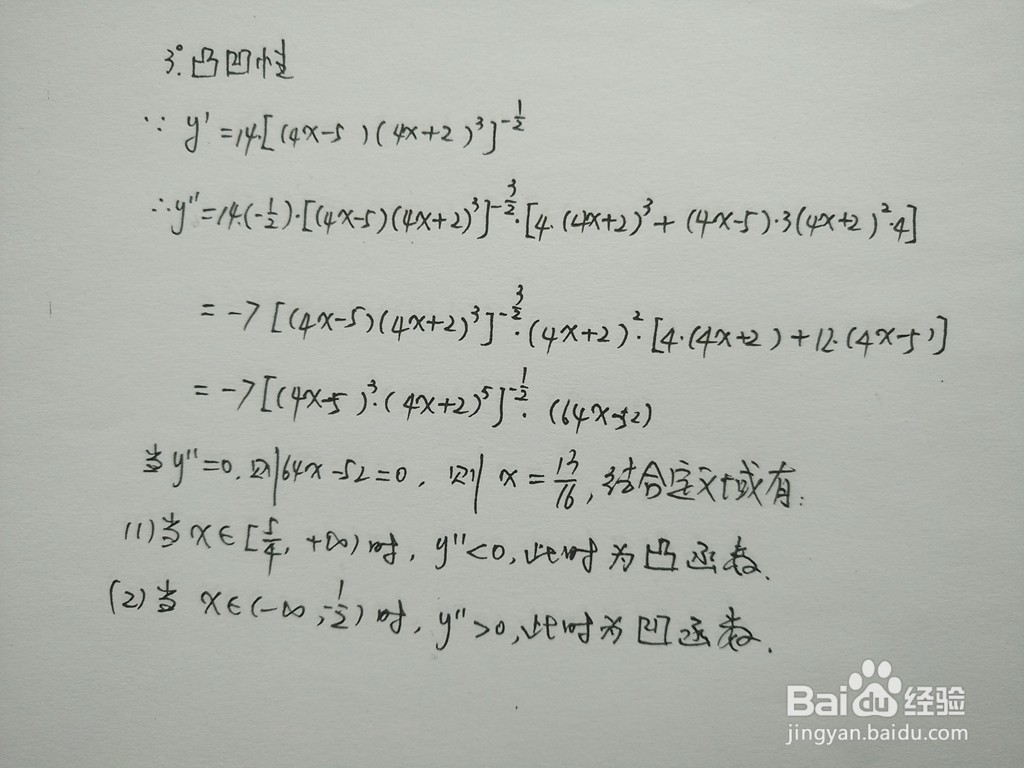 3°.凸凹性
∵ y' = 14·[(4x-5)(4x+2)³]^{-1/2}
∴y'' = 14·(-1/2)·[(4x-5)(4x+2)³]^{-3/2}·[4·(4x+2)³ + (4x-5)·3(4x+2)²·4]
= -7[(4x-5)(4x+2)³]^{-3/2}·(4x+2)²·[4·(4x+2)+12·(4x-5)]
= -7[(4x-5)³·(4x+2)⁵]^{-1/2}·(64x-52)
当y''=0,则64x-52=0,则x=13/16,结合定义域有:
(1)当x∈[5/4,+∞)时,y''<0,此时为凸函数.
(2)当x∈(-∞,-1/2)时,y''>0,此时为凹函数.
Baidu经验
jingyan.baidu.com